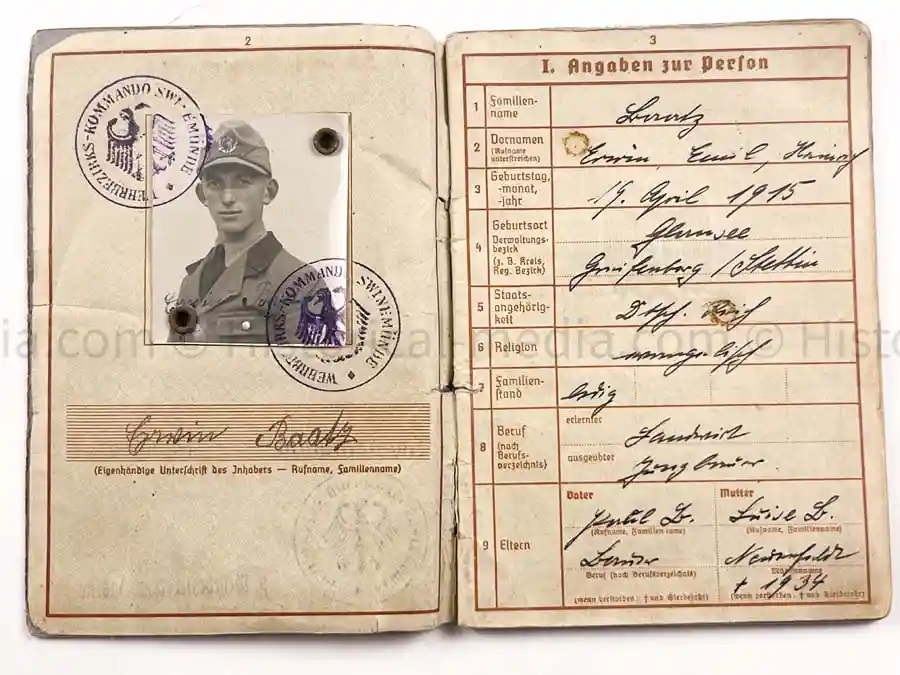 2
WEHRBEZIRKS-KOMMANDO SWINEMÜNDE
WEHRBEZIRKS-KOMMANDO SWINEMÜNDE
Erwin Baatz
(Eigenhändige Unterschrift des Inhabers — Rufname, Familienname)
3
I. Angaben zur Person
1 Familien-
name
Baatz
2 Vornamen
(Rufname
unterstreichen)
Erwin, Emil,
3 Geburtstag,
-monat,
-jahr
19. April 1915
4 Geburtsort
Verwaltungs-
bezirk
(z. B. Kreis,
Reg. Bezirk)
Glansee
Greifenberg / Stettin
5 Staats-
angehörig-
keit
Dtsch. Reich
6 Religion
evangelisch
7 Familien-
stand
ledig
8 Beruf
(nach
Berufs-
verzeichnis)
erlernter
Landwirt
ausgeübter
Jungbauer
9 Eltern
Vater
Mutter
Paul B.
Luise B.
(Rufname, Familienname)
(Rufname, Familienname)
Bauer
Neuenfeldt
Beruf (nach Berufsverzeichnis)
Mädchenname
† 1934
(wenn verstorben: † und Sterbejahr)
(wenn verstorben: † und Sterbejahr)
ia.com © Historical-media.com © Histo